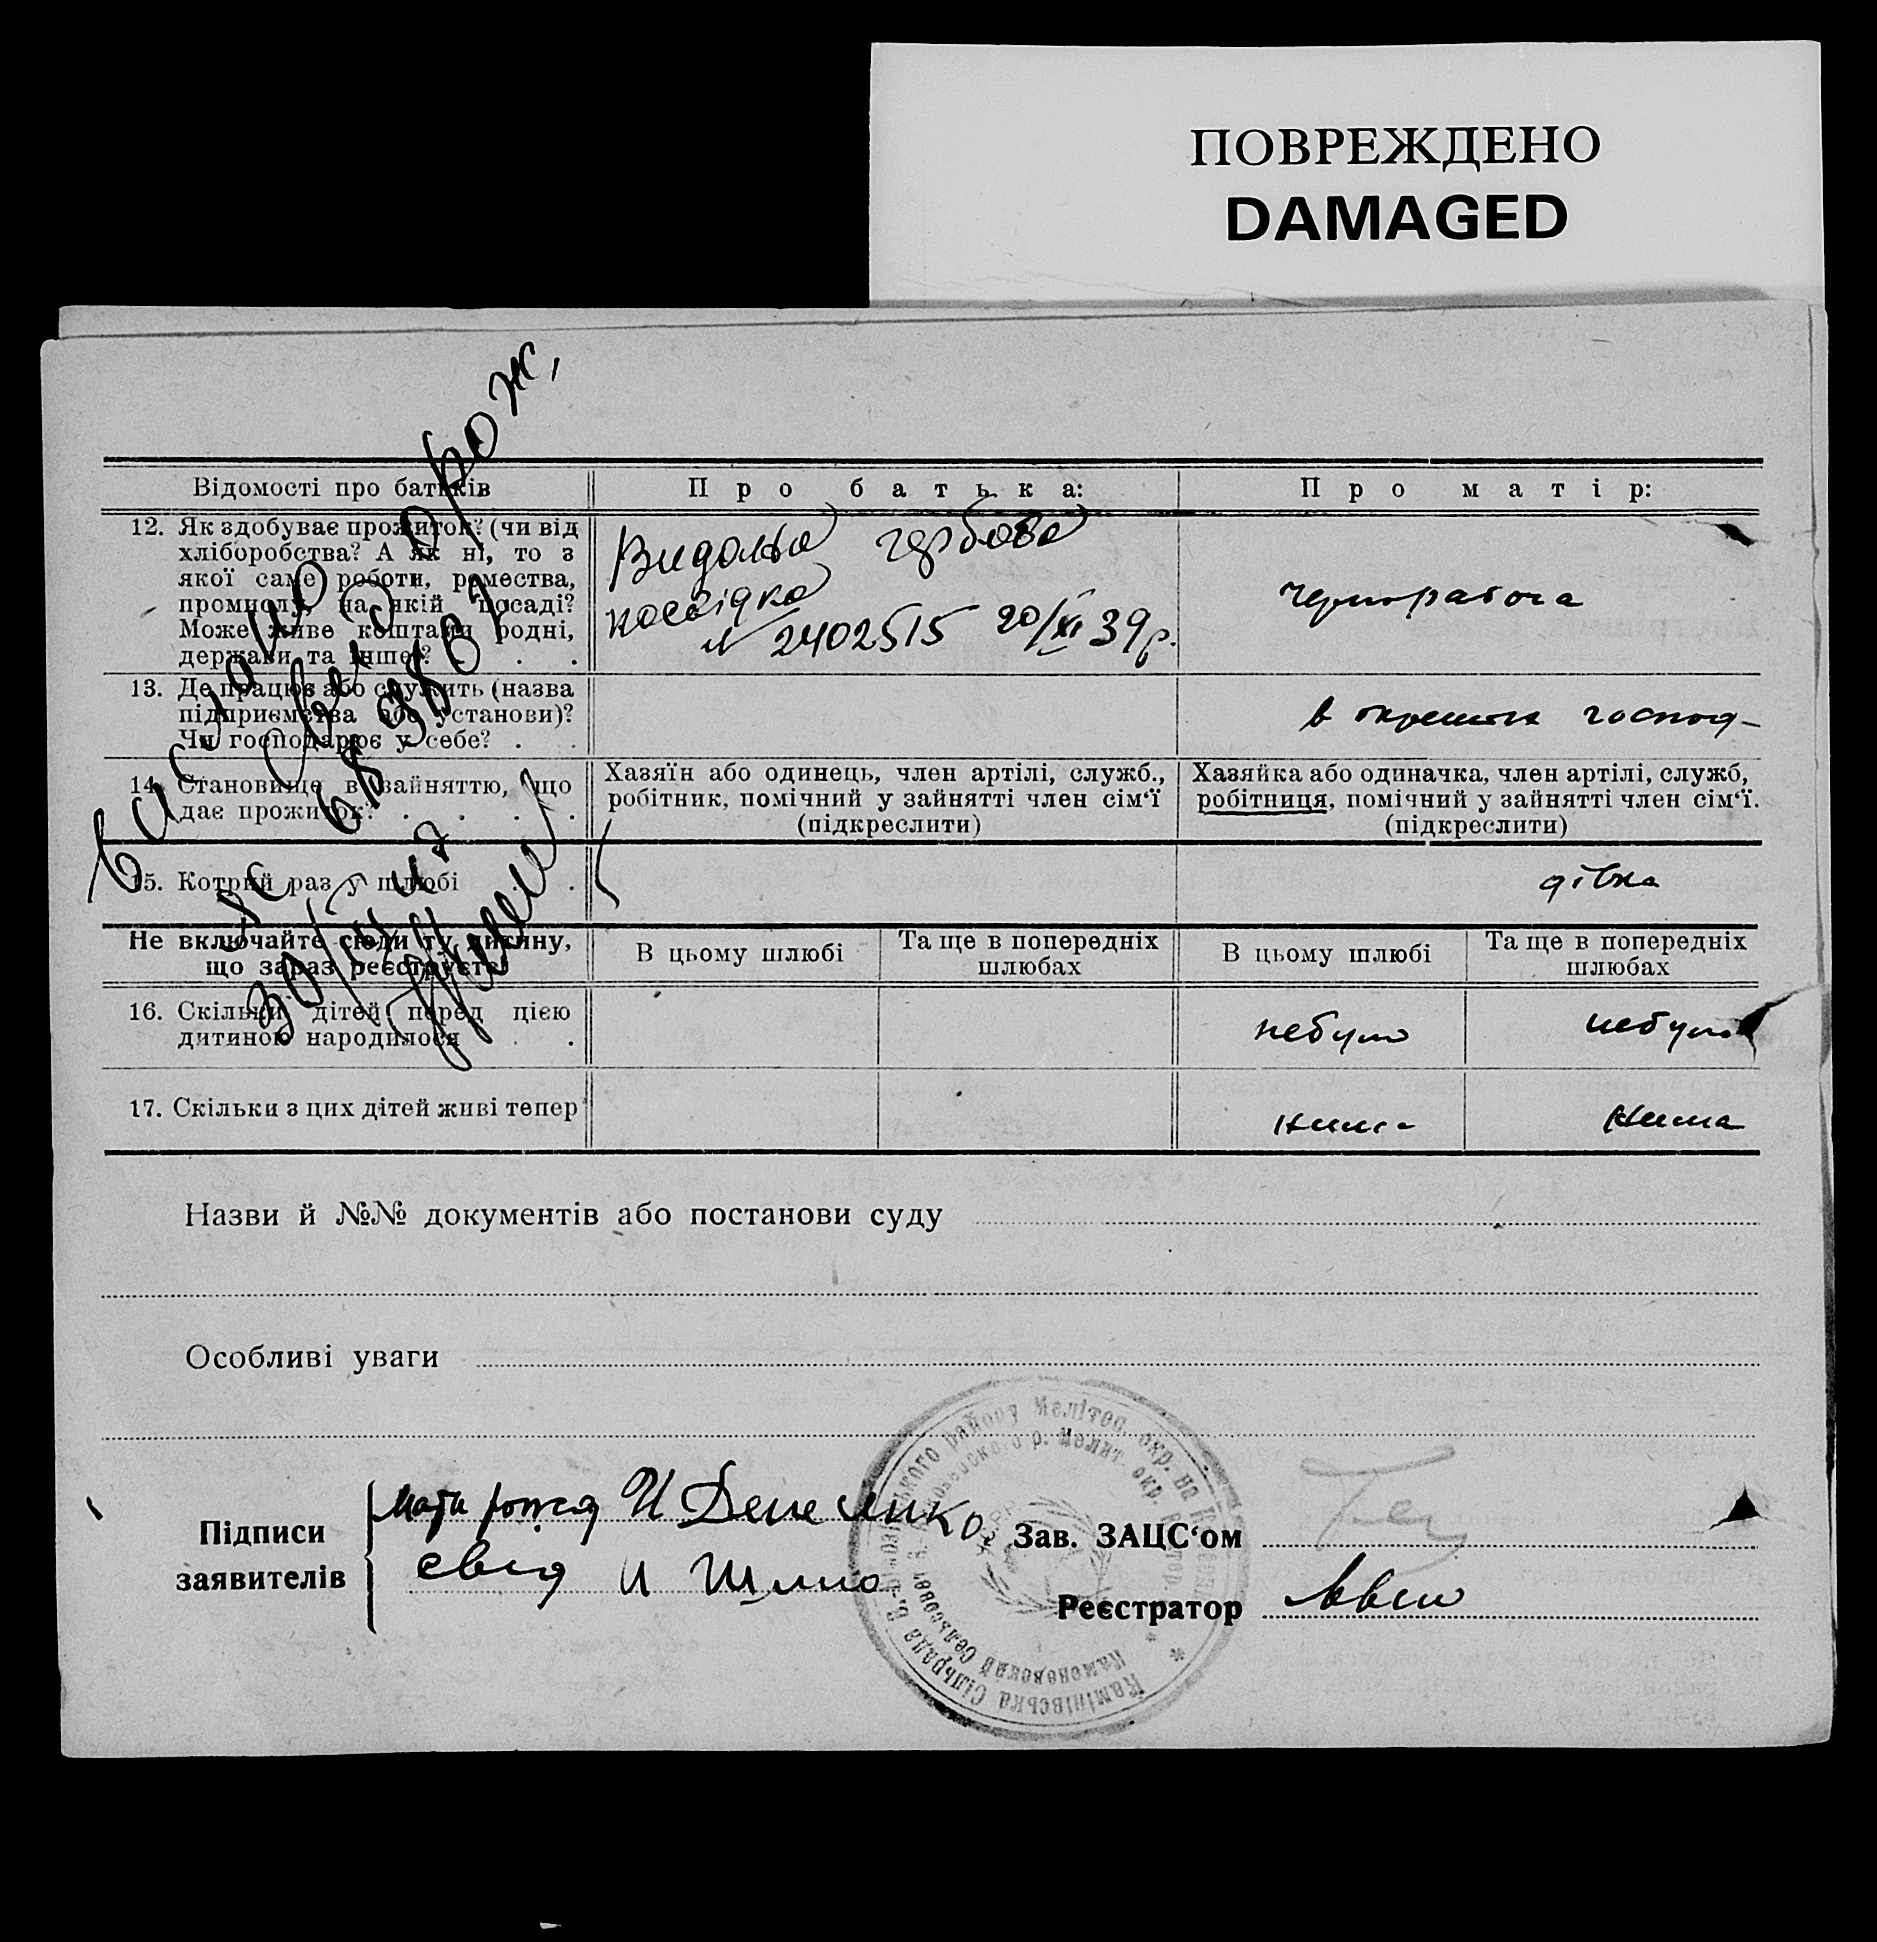 ПОВРЕЖДЕНО
DAMAGED
Відомості про батьків
Про батька:
Про матір:
12. Як здобуває прожиток? (чи від
хліборобства? А як ні, то з
якої саме роботи, ремества,
промислу, на якій посаді?
Може живе коштами родні,
держави та інше? . . .
Видано гербова
посвідка
№ 2402515 20/XI 39 р.
чернорабоча
13. Де працює або служить (назва
підприємства або установи)?
Чи господарює у себе? . .
в господ-
14. Становище в зайняттю, що
дає прожиток? . . . .
Хазяїн або одинець, член артілі, служб.,
робітник, помічний у зайнятті член сім‘ї
(підкреслити)
Хазяйка або одиначка, член артілі, служб,
робітниця, помічний у зайнятті член сім‘ї.
(підкреслити)
15. Котрий раз у шлюбі . .
дівка
Не включайте сюди ту дитину,
що зараз реєструєте
В цьому шлюбі
Та ще в попередніх
шлюбах
В цьому шлюбі
Та ще в попередніх
шлюбах
16. Скільки дітей перед цією
дитиною народилося . .
небуло
небуло
17. Скільки з цих дітей живі тепер
нима
нима
рож,
Назви й №№ документів або постанови суду
Особливі уваги
Підписи
заявителів
мати
свід И
Зав. ЗАЦС‘ом
Реєстратор
Камінівська Сільрада В.-Білозільського району Меліто. окр. на
Каменовский Сельсовет р. Мелит. окр.